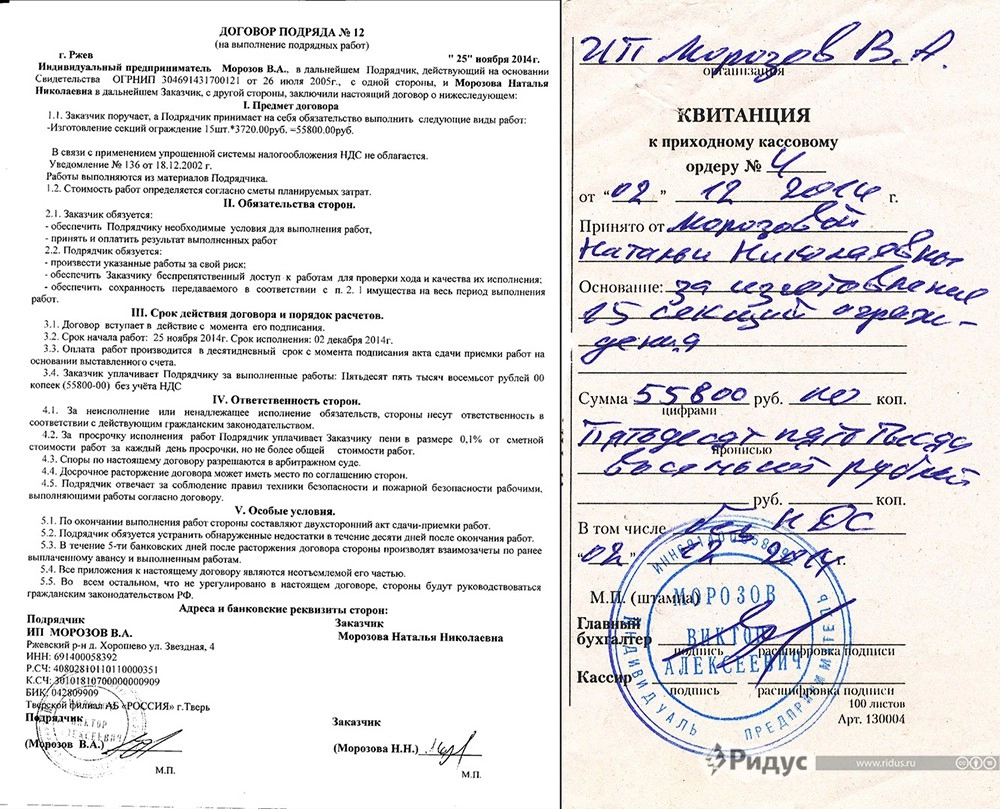 ДОГОВОР ПОДРЯДА № 12
(на выполнение подрядных работ)
г. Ржев
" 25" ноября 2014г.
Индивидуальный предприниматель Морозов В.А., в дальнейшем Подрядчик, действующий на основании
Свидетельства ОГРНИП 304691431700121 от 26 июля 2005г., с одной стороны, и Морозова Наталья
Николаевна в дальнейшем Заказчик, с другой стороны, заключили настоящий договор о нижеследующем:
I. Предмет договора
1.1. Заказчик поручает, а Подрядчик принимает на себя обязательство выполнить следующие виды работ:
-Изготовление секций ограждение 15шт.*3720.00руб. =55800.00руб.
В связи с применением упрощенной системы налогообложения НДС не облагается.
Уведомление № 136 от 18.12.2002 г.
Работы выполняются из материалов Подрядчика.
1.2. Стоимость работ определяется согласно сметы планируемых затрат.
II. Обязательства сторон.
2.1. Заказчик обязуется:
- обеспечить Подрядчику необходимые условия для выполнения работ,
- принять и оплатить результат выполненных работ
2.2. Подрядчик обязуется:
- произвести указанные работы за свой риск;
- обеспечить Заказчику беспрепятственный доступ к работам для проверки хода и качества их исполнения;
- обеспечить сохранность передаваемого в соответствии с п. 2. 1 имущества на весь период выполнения
работ.
III. Срок действия договора и порядок расчетов.
3.1. Договор вступает в действие с момента его подписания.
3.2. Срок начала работ: 25 ноября 2014г. Срок исполнения: 02 декабря 2014г.
3.3. Оплата работ производится в десятидневный срок с момента подписания акта сдачи приемки работ на
основании выставленного счета.
3.4. Заказчик уплачивает Подрядчику за выполненные работы: Пятьдесят пять тысяч восемьсот рублей 00
копеек (55800-00) без учёта НДС
IV. Ответственность сторон.
4.1. За неисполнение или ненадлежащее исполнение обязательств, стороны несут ответственность в
соответствии с действующим гражданским законодательством.
4.2. За просрочку исполнения работ Подрядчик уплачивает Заказчику пени в размере 0,1% от сметной
стоимости работ за каждый день просрочки, но не более общей стоимости работ.
4.3. Споры по настоящему договору разрешаются в арбитражном суде.
4.4. Досрочное расторжение договора может иметь место по соглашению сторон.
4.5. Подрядчик отвечает за соблюдение правил техники безопасности и пожарной безопасности рабочими,
выполняющими работы согласно договору.
V. Особые условия.
5.1. По окончании выполнения работ стороны составляют двухсторонний акт сдачи-приемки работ.
5.2. Подрядчик обязуется устранить обнаруженные недостатки в течение десяти дней после окончания работ.
5.3. В течение 5-ти банковских дней после расторжения договора стороны производят взаимозачеты по ранее
выплаченному авансу и выполненным работам.
5.4. Все приложения к настоящему договору являются неотъсмлемой его частью.
5.5. Во всем остальном, что не урегулировано в настоящем договоре, стороны будут руководствоваться
гражданским законодательством РФ.
Адреса и банковские реквизиты сторон:
Подрядчик
Заказчик
ИП МОРОЗОВ В.А.
Морозова Наталья Николаевна
Ржевский р-н д. Хорошево ул. Звездная, 4
ИНН: 691400058392
Р.СЧ: 40802810110110000351
К.СЧ: 30101810700000000909
БИК: 042809909
Тверской филиал АБ «РОССИЯ» г.Тверь
Подрядчик
Заказчик
(Морозов В.А.)
(Морозова Н.Н.)
М.П.
М.П.
ИП Морозов В.А.
организация
КВИТАНЦИЯ
к приходному кассовому
ордеру № 4
от "02" 12 2014 г.
Принято от Морозовой
Натальи Николаевны
Основание: за изготовление
15 секций ограж-
дения
Сумма 55800 руб. 00 коп.
цифрами
Пятьдесят пять тысяч
прописью
восемьсот рублей
руб. коп.
В том числе НДС
"02" 12 2014 г.
М.П. (штампа)
МОРОЗОВ
ВИКТОР
АЛЕКСЕЕВИЧ
ИНДИВИДУАЛЬ ПРЕДПРИНИМАТЕЛЬ
Главный
бухгалтер
подпись расшифровка подписи
Кассир
подпись расшифровка подписи
100 листов
Арт. 130004
Ридус
www.ridus.ru